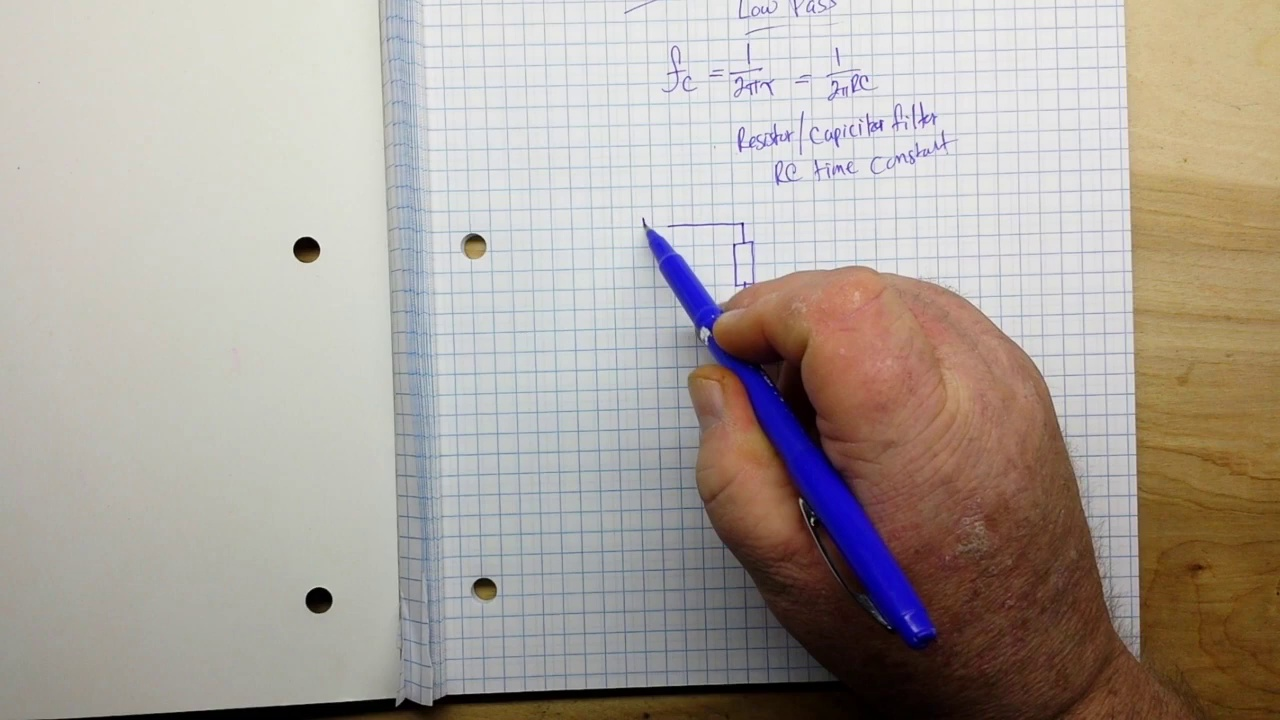 Low Pass
fc = 1/2πτ = 1/2πRC
Resistor/Capicitor filter
RC time constant